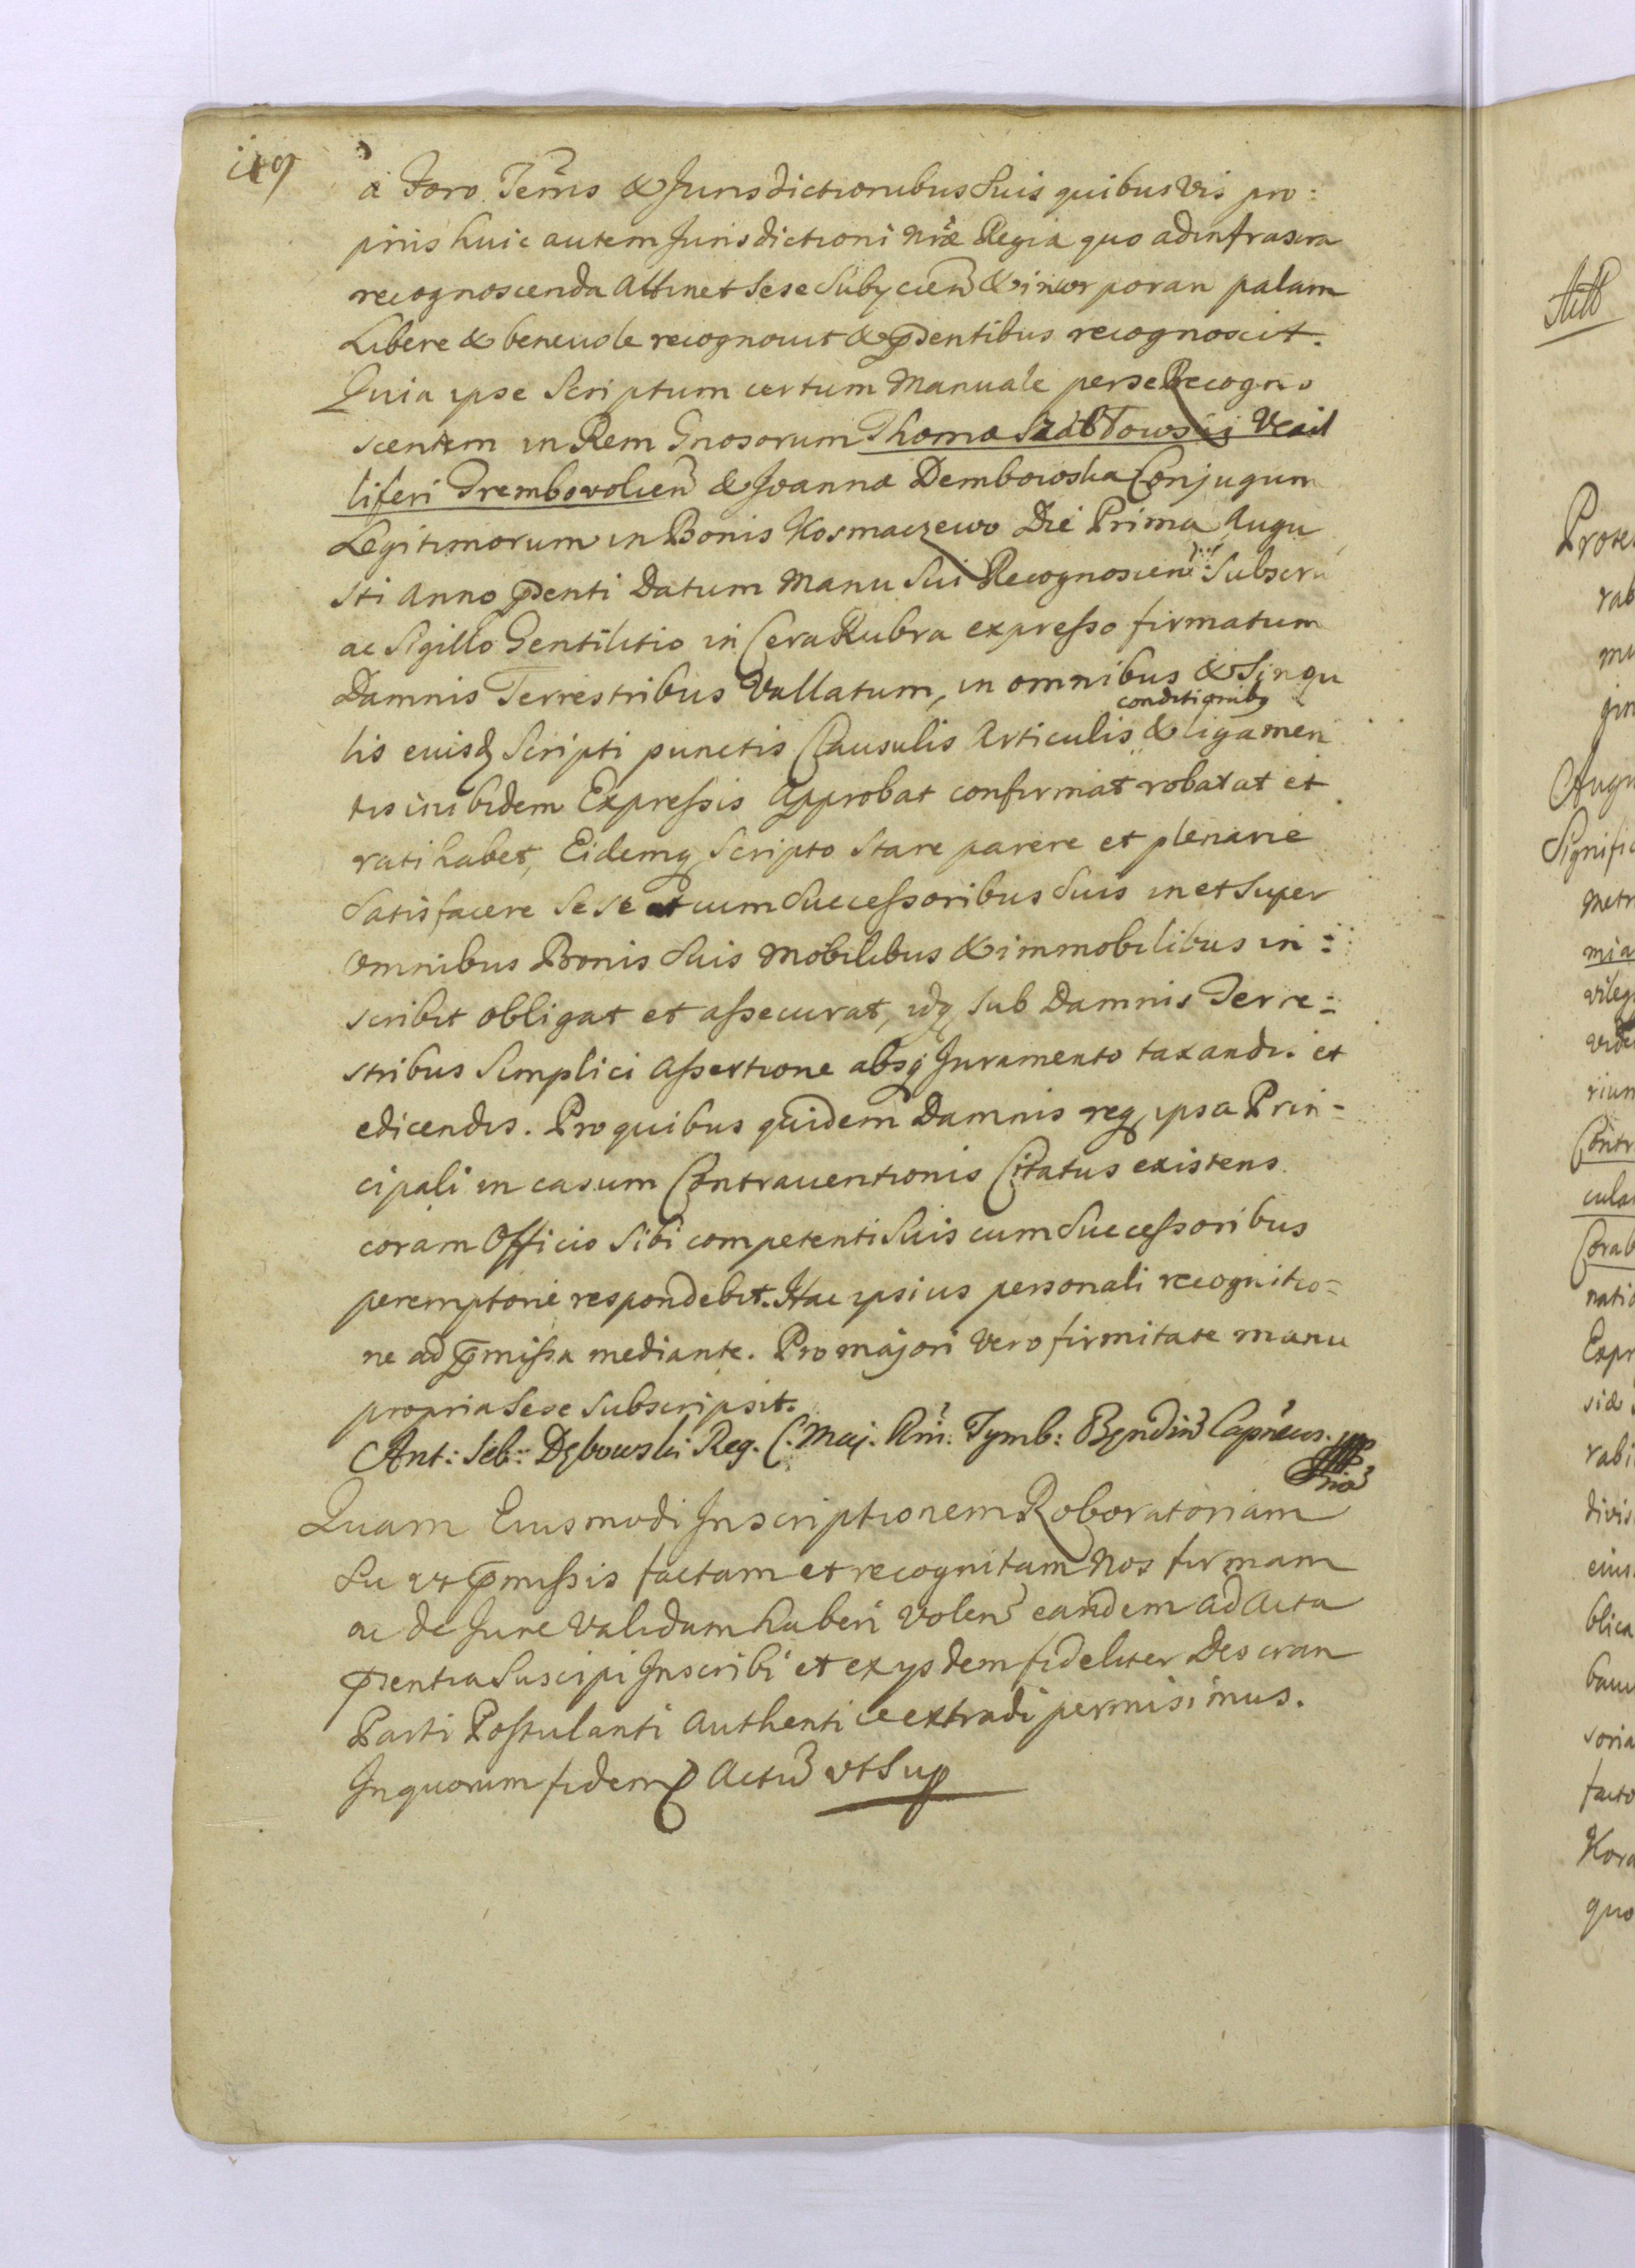 à Foro Terris & Jurisdictionibus Suis quibusvis pro:
priis huic autem Jurisdictioni Nrae Regia quo ad infrascra
recognoscenda Attinet Sese Subycien & incorporan palam
Libere & beneuole recognouit & pdentibus recognoscit.
Quia ipse Scriptum certum Manuale per se Recogno
scentem in Rem Gnosorum Thoma Vexil
liferi Trembovolien & Joanna Dembowska Conjugum
Legitimorum in Bonis Kosmaczewo Die Prima Augu
sti Anno pdenti Datum Manu Sui Recognoscen: Subscru
ac Sigillo Gentilitio in Cera Rubra expresso firmatum
Damnis Terrestribus Vallatum, in omnibus & Singu
conditionibq
lis euisdq Scripti punctis Clausulis Articulis & ligamen
tis inibidem Expressis Approbat confirmat robarat et
ratihabet, Eidemq Scripto Stare parere et plenarie
Satisfacere Sese et cum Successoribus Suis in et Super
Omnibus Bonis Suis Mobilibus & immobilibus in:
scribit Obligat et assecurat, idq Sub Damnis Terre:
stribus Simplici Assertione absq Juramento taxandis et
edicendis. Pro quibus quidem Damnis req ipsa Prin-
cipali in casum Contrauentionis Citatus existens
coram Officio Sibi competenti Suis cum Successoribus
peremptorie respondebit. Hac ipsius personali recognitio-
ne ad pmissa mediante. Pro majori Vero firmitate manu
propria Sese Subscripsit.
Ant: Seb: Dębowski Reg. C. Maj. Tymb: Capneus.
Quam Eiusmodi Inscriptionem Roboratoriam
Sic vt pmissis factam et recognitam Nos firmam
ac de Jure Validam haberi Volen eandem ad Acta
pdentia Suscipi Inscribi et ex ysdem fideliter Descran
Parti Postulanti Authentice extradi permisimus.
In quorum fidem Actu vt Sup
Prote
rab
mu
Augu
Signific
Metr
mia
vileg
rium
Contr
cula
Corab
natio
Expr
sid
rabi
divis
eius
blica
bau
soria
facto
Kora
quo